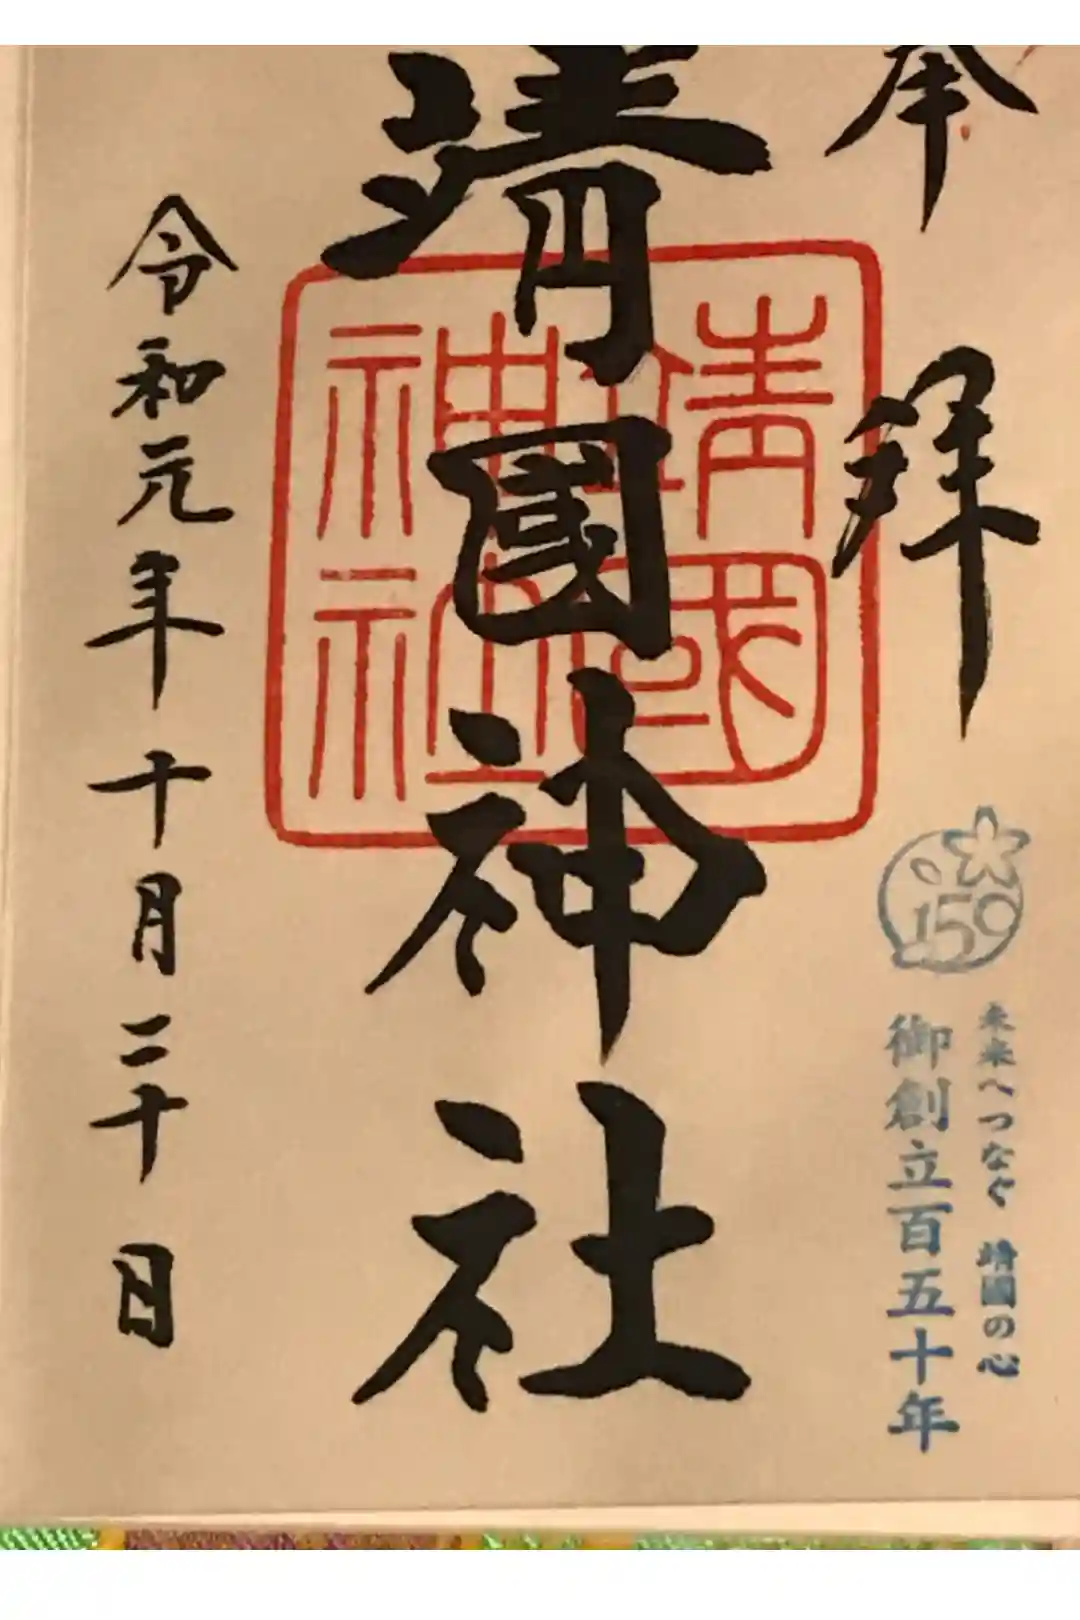 奉拝
150
未来へつなぐ 靖國の心
御創立百五十年
靖國神社
靖國神社
令和元年十月二十日